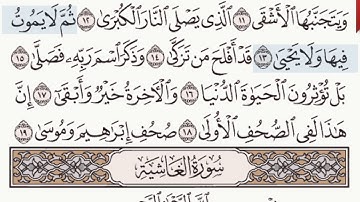 وَيَتَجَنَّبُهَا الْأَشْقَى ١١ الَّذِي يَصْلَى النَّارَ الْكُبْرَى ١٢ ثُمَّ لَا يَمُوتُ
فِيهَا وَلَا يَحْيَى ١٣ قَدْ أَفْلَحَ مَن تَزَكَّى ١٤ وَذَكَرَ اسْمَ رَبِّهِ فَصَلَّى ١٥
بَلْ تُؤْثِرُونَ الْحَيَوٰةَ الدُّنْيَا ١٦ وَالْآخِرَةُ خَيْرٌ وَأَبْقَى ١٧ إِنَّ
هَٰذَا لَفِي الصُّحُفِ الْأُولَى ١٨ صُحُفِ إِبْرَاهِيمَ وَمُوسَى ١٩
سُورَةُ الْغَاشِيَةِ